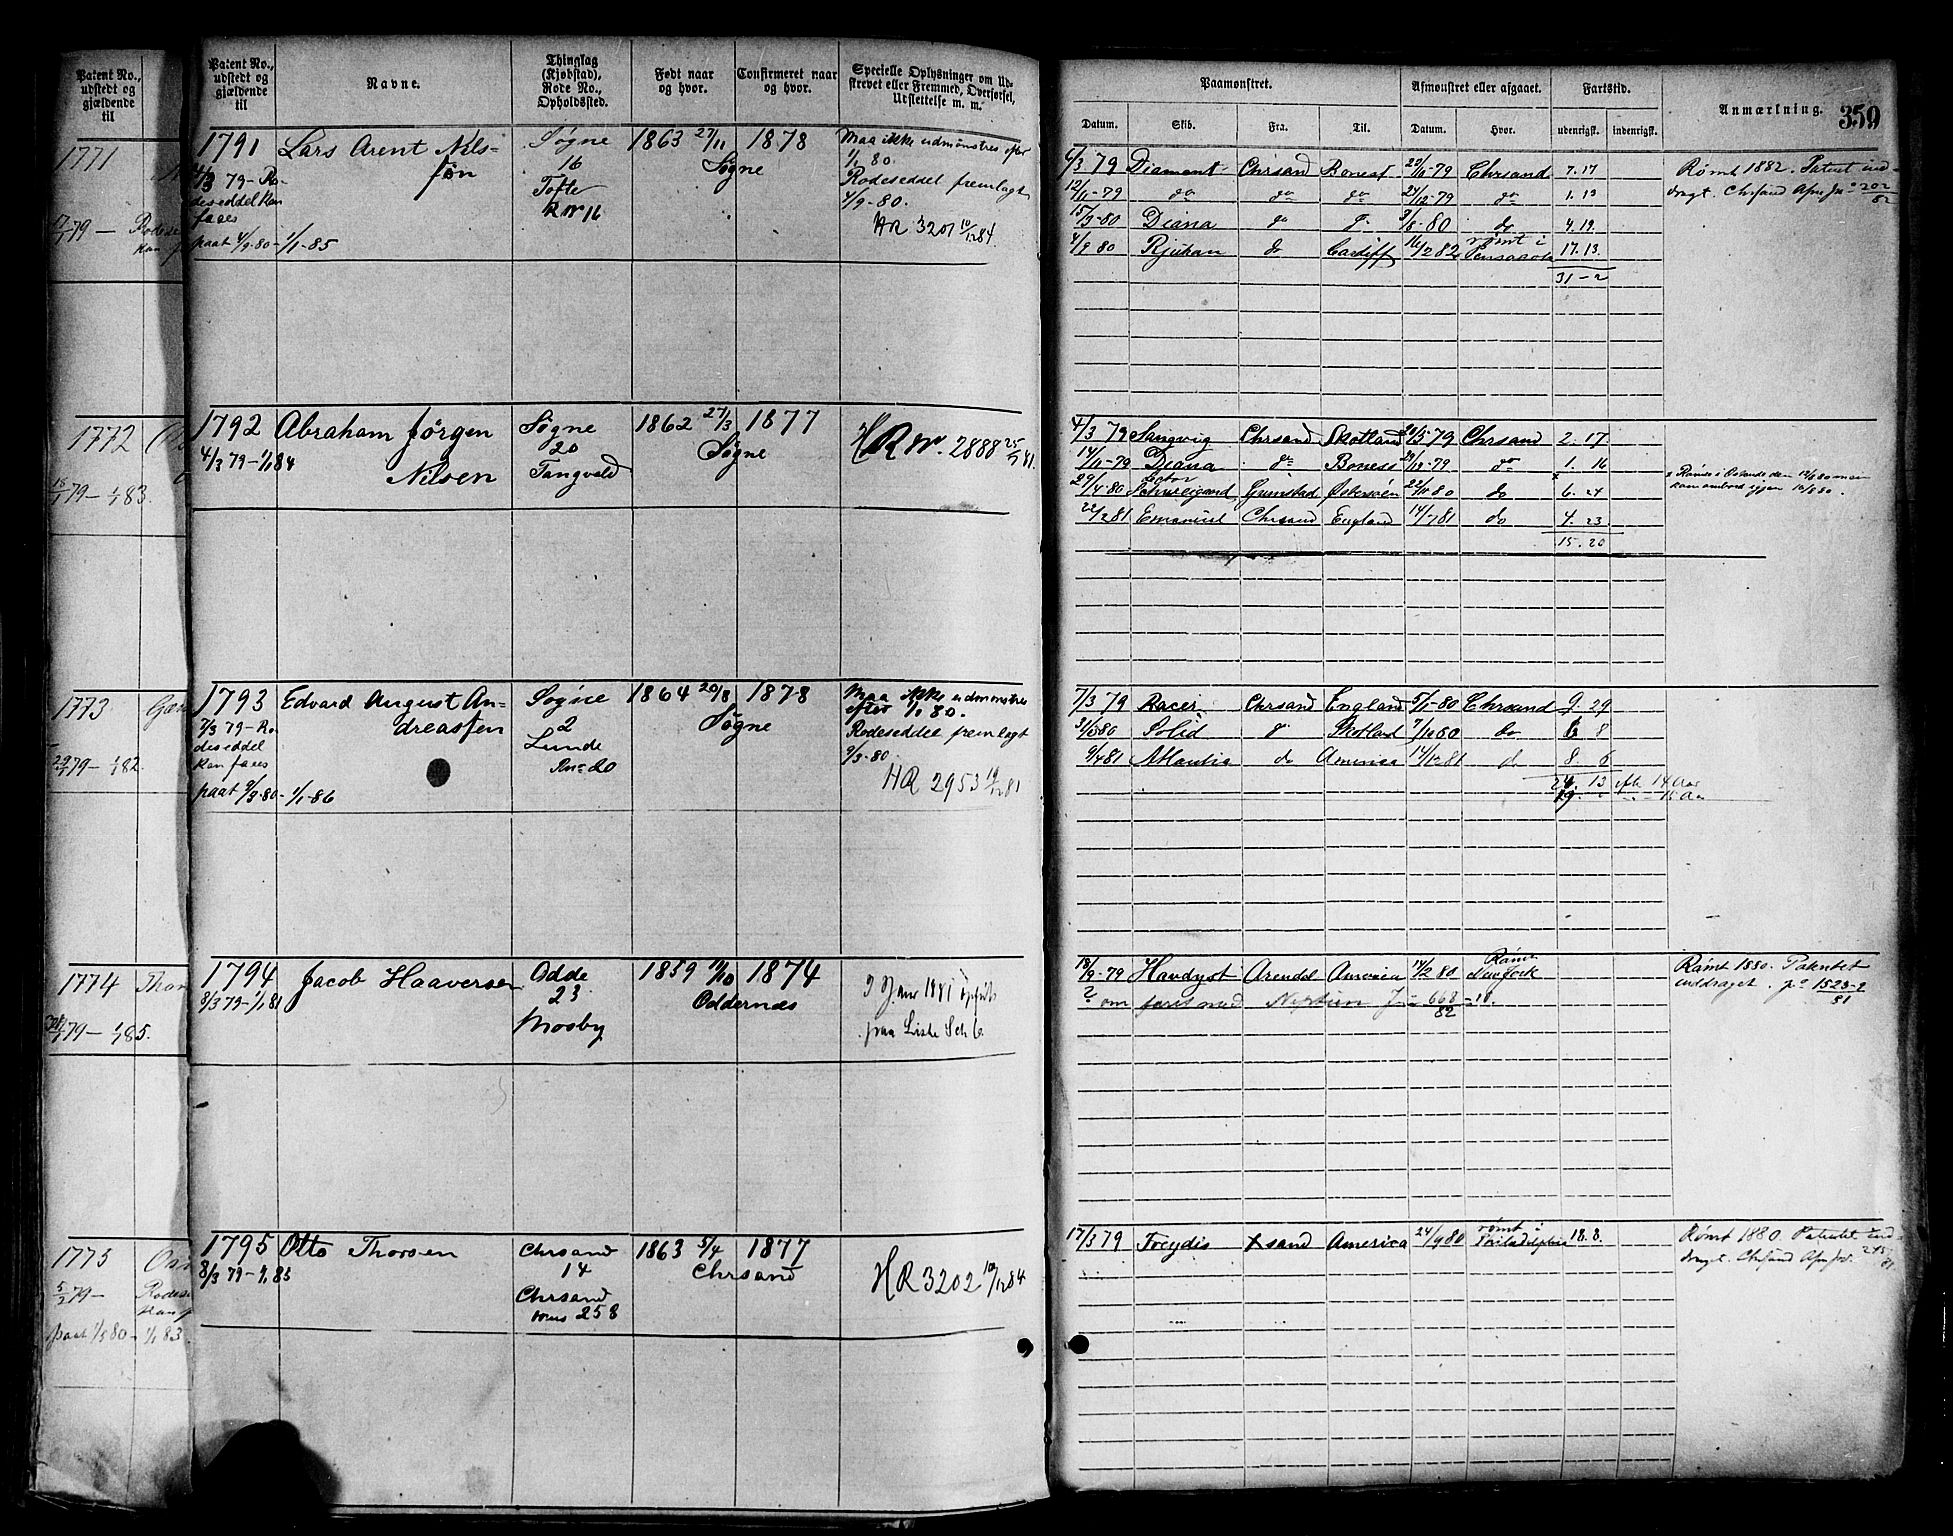 Patent No.,
udstedt og
gjældende
til
1771
1772
1773
1774
1775
Patent No.,
udstedt og
gjældende
til
Navne.
Thinglag
(Kjøbstad),
Rode No.,
Opholdssted.
Født naar
og hvor.
Confirmeret naar
og hvor.
Specielle Oplysninger om Ud-
skrevet eller Fremmed, Overførsel,
Udslettelse m. m.
1791 Lars Arent Nils- Søgne 1863 27/11 1878 Maa ikke udmønstres efter
søn 16 Søgne 1/1 80.
4/3 79 - Ro- Tofte Rodeseddel fremlagt
deseddel kan R No 16 4/9-80.
faaes HR 3201 10/12 84.
paat 4/9-80-1/1-85
1792 Abraham Jørgen Søgne 1862 27/3 1877
4/3 79-1/1 84 Nilsen 20 Søgne HR No. 2888 25/7 81.
Tangvald
1793 Edvard August An- Søgne 1864 20/8 1878 Maa ikke udmønstres
dreassen 2 Søgne efter 1/1 80.
7/3 79-Ro- Lunde Rodeseddel fremlagt
deseddel Rno 20 9/3-80.
kan faaes HR 2953 14/12 81
paat 9/3-80-1/1-86
1794 Jacob Haaversen Odde 1859 11/10 1874
8/3 79-1/1 81 23 Oddernæs
Mosby paa Liste
1795 Otto Thorsen Chrsand 1863 5/4 1877
8/3 79-1/1 85 14 Chrsand HR 3202 10/12 84
Chrsand
258
Paamønstret. Afmønstret eller afgaaet. Fartstid. Anmærkning. 359
Datum. Skib. Fra. Til. Datum. Hvor. udenrigsk. indenrigsk.
6/3 79 Diamant Chrsand Boness 29/9-79 Chrsand 7.17 Rømt 1882. Patent ind-
12/11-79 do do do 24/12-79 do 1.13 dragt. Chrsand 202/82
15/3-80 Diana do do 3/8-80 do 4.19.
4/9 80 Rjukan do Cardiff 16/2 82 rømt i Pensacola 17.13.
31-2
4/3 79 Sangvig Chrsand Skotland 20/5-79 Chrsand 2.17
14/11-79 Diana do Boness 29/12-79 do 1.16
29/4-80 Schweigaard Grimstad Østersøen 22/11 80 do 6.24
22/2 81 Emanuel Chrsand England 14/7 81 do 4.23
15.20
7/3 79 Racer Chrsand England 5/1-80 Chrsand 9 29
31/3 80 Solid do Skotland 7/10 80 do 6 8
9/4 81 Atlantic do America 14/12 81 do 8 6
24.13
18/9-79 Arendal America 14/2 80 Rømt New York Rømt 1880. Patentet
inddraget.
668/82 1523-2/81
17/3 79 Freydis Xsand America 24/9 80 rømt i Philadelphia 18.8. Rømt 1880. Patentet ind-
dragt. Chrsand